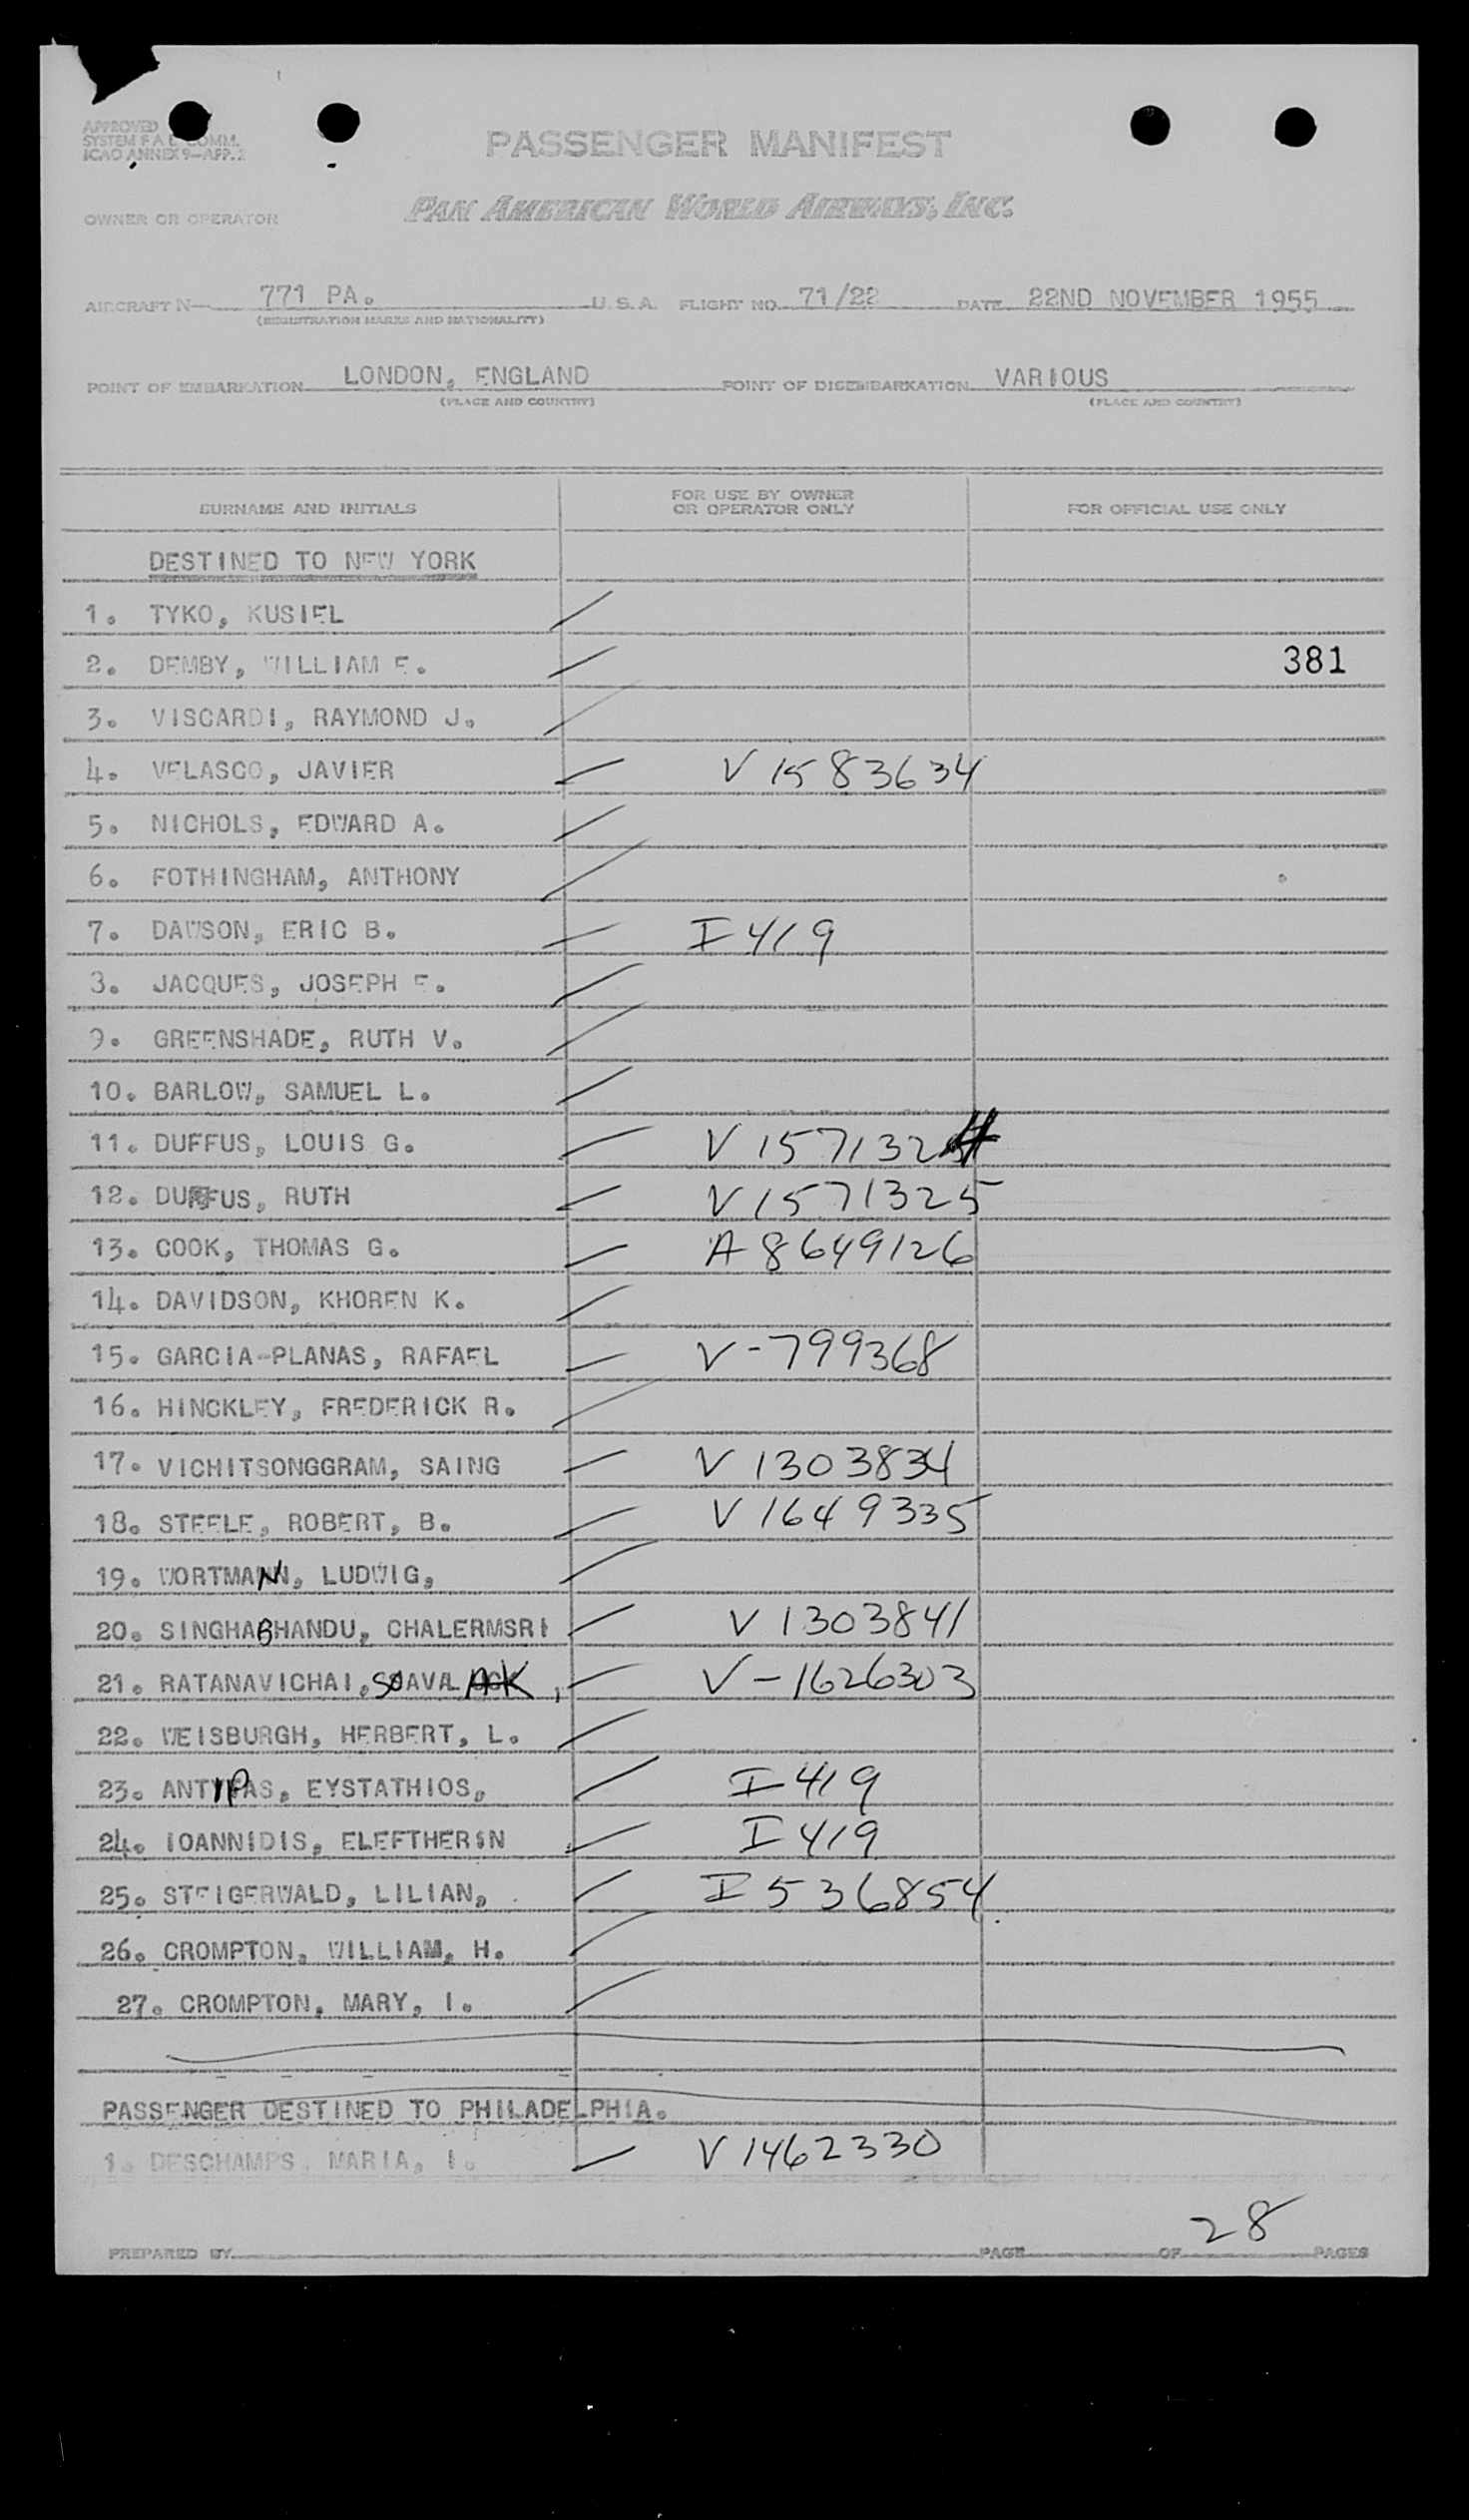 APPROVED
SYSTEM F A L COMM.
ICAO ANNEX 9—APP. 2
PASSENGER MANIFEST
OWNER OR OPERATOR PAN AMERICAN WORLD AIRWAYS, INC.
AIRCRAFT N— 771 PA. U. S. A. FLIGHT NO. 71/22 DATE 22ND NOVEMBER 1955
(REGISTRATION MARKS AND NATIONALITY)
POINT OF EMBARKATION LONDON, ENGLAND POINT OF DISEMBARKATION VARIOUS
(PLACE AND COUNTRY) (PLACE AND COUNTRY)
SURNAME AND INITIALS FOR USE BY OWNER OR OPERATOR ONLY FOR OFFICIAL USE ONLY
DESTINED TO NEW YORK
1. TYKO, KUSIEL
2. DEMBY, WILLIAM E. 381
3. VISCARDI, RAYMOND J.
4. VELASCO, JAVIER V 1583634
5. NICHOLS, EDWARD A.
6. FOTHINGHAM, ANTHONY
7. DAWSON, ERIC B. I 419
8. JACQUES, JOSEPH E.
9. GREENSHADE, RUTH V.
10. BARLOW, SAMUEL L.
11. DUFFUS, LOUIS G. V 1571324
12. DUFFUS, RUTH V 1571325
13. COOK, THOMAS G. A 8649126
14. DAVIDSON, KHOREN K.
15. GARCIA-PLANAS, RAFAEL V-799368
16. HINCKLEY, FREDERICK R.
17. VICHITSONGGRAM, SAING V 1303834
18. STEELE, ROBERT, B. V 1649335
19. WORTMANN, LUDWIG,
20. SINGHABHANDU, CHALERMSRI V 1303841
21. RATANAVICHAI, SOAVALACK, V-1626303
22. WEISBURGH, HERBERT, L.
23. ANTIPAS, EYSTATHIOS, I 419
24. IOANNIDIS, ELEFTHERIN I 419
25. STEIGERWALD, LILIAN, I 536854
26. CROMPTON, WILLIAM, H.
27. CROMPTON, MARY, I.
PASSENGER DESTINED TO PHILADELPHIA.
1. DESCHAMPS, MARIA, I. V 1462330
PREPARED BY PAGE OF 28 PAGES